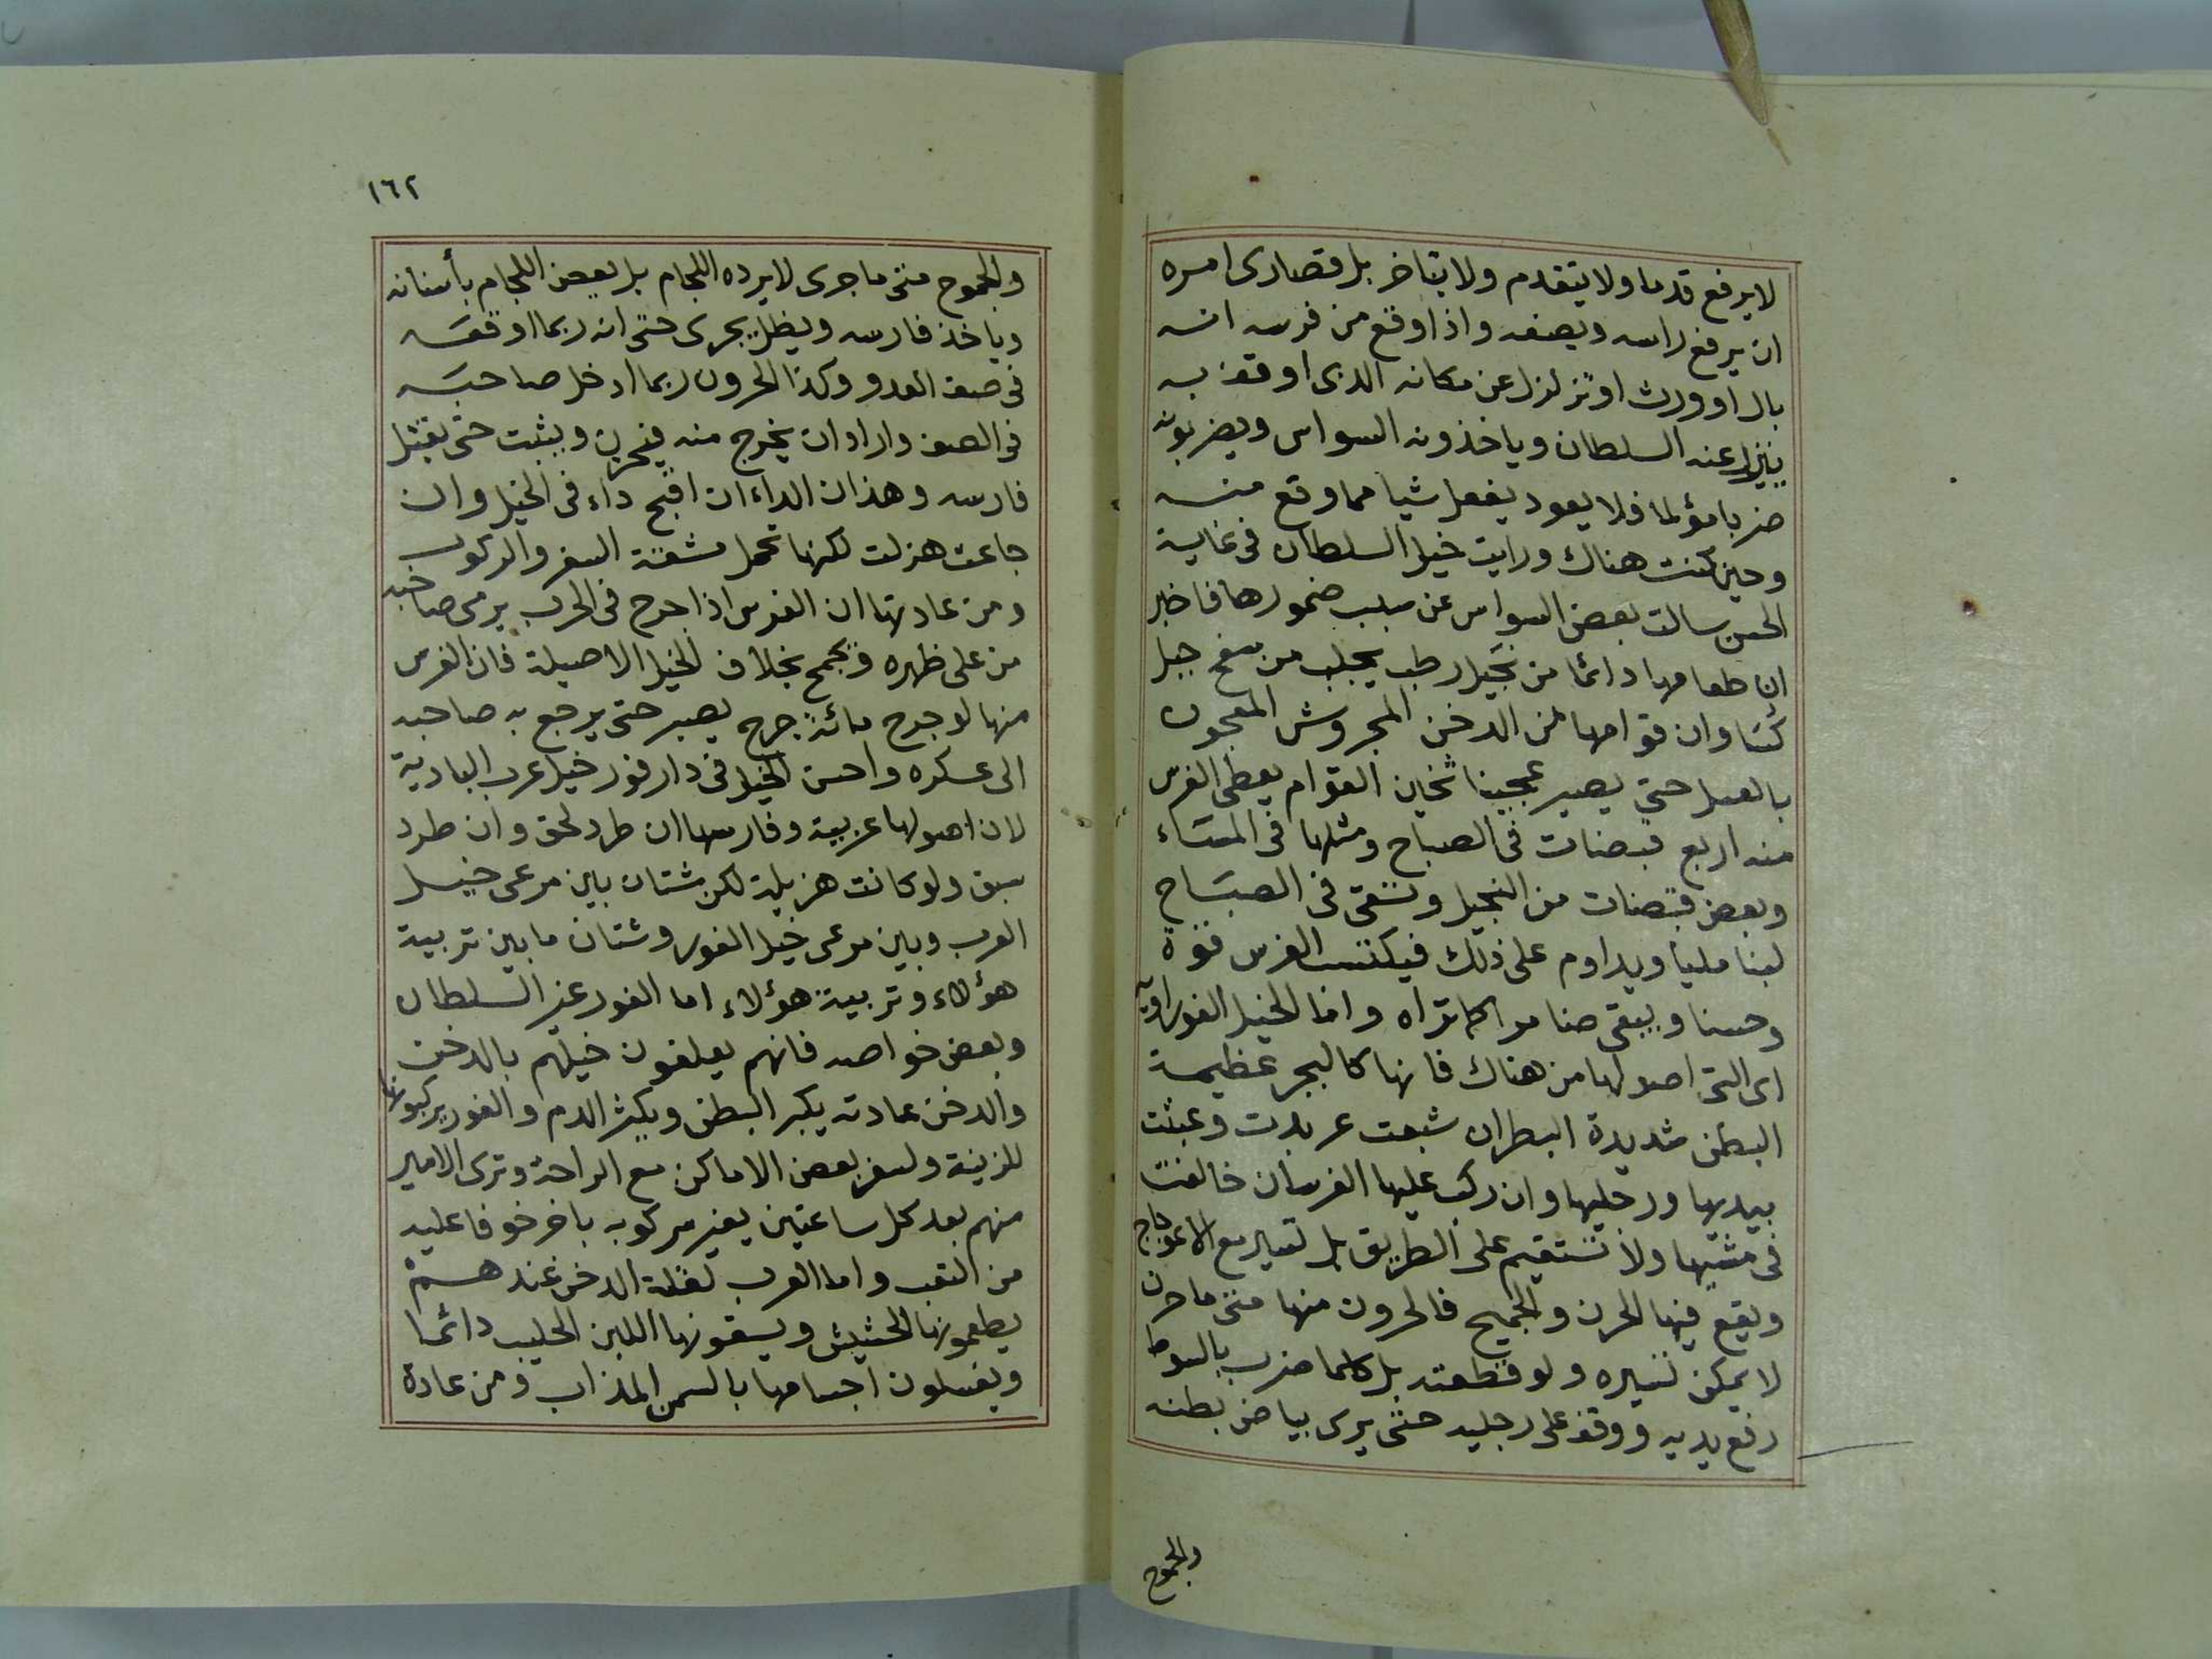 لا يرفع قدما ولا يتقدم ولا يتاخر بل قصارى امره
ان يرفع راسه ويصفه واذا وقع من فرسه انه
بال او ورث او تزلزل عن مكانه الذى اوقف به
ينزل عنه السلطان وياخذونه السواس ويضربونه
ضربا مؤلما فلا يعود يفعل شيا مما وقع منه
وحين كنت هناك ورايت خيل السلطان فى غاية
الحسن سالت بعض السواس عن سبب ضمورها فاخبر
ان طعامها دائما من نجيل رطب يجلب من سفح جبل
كُسَا وان قوامها من الدخن المجروش المعجون
بالعسل حتي يصير عجينا ثخين القوام يعطى الفرس
منه اربع قبضات فى الصباح ومثلها فى المسَاء
وبعض قبضات من النجيل وتسقى فى الصبَاح
لبنا مليا ويداوم على ذلك فيكتسب الفرس قوة
وحسنا ويبقى ضامرا كما تراه واما الخيل الفوراويه
اى التى اصولها من هناك فانها كالبجر عظيمة
البطن شديدة البطر ان شبعت عربدت وعبثت
بيديها ورجليها وان ركب عليها الفرسان خالفت
فى مشيها ولا تستقيم على الطريق بل تسير مع الاعوجاج
ويقع فيها الحرن والجميح فالحرون منها متى ما حرن
لا يمكن تسيره ولو قطعته بل كلما ضرب بالسوط
رفع يديه ووقف على رجليه حتى يرى بياض بطنه
والجموح
١٦٢
والجموح متى ما جرى لا يرده اللجام بل يعض اللجام بأسنانه
وياخذ فارسه ويظل يجرى حتى انه ربما اوقعَه
فى صف العدو وكذا الحرون ربما ادخل صاحبَه
فى الصف واراد ان يخرج منه فيحرن ويثبت حتى يقتل
فارسه وهذان الداءان اقبح داء فى الخيل وان
جاعت هزلت لكنها تحمل مشقة السفر والركوب
ومن عادتها ان الفرس اذا جرح فى الحرب يرمى صاحبه
من على ظهره ويجمح بخلاف الخيل الاصيلة فان الفرس
منها لو جرح مائة جرح يصبر حتى يرجع به صاحبه
الى عسكره واحسن الخيل فى دارفور خيل عرب البادية
لان اصولها عربية وفارسها ان طرد لحق وان طرد
سبق ولو كانت هزيلة لكن شتان بين مرعى خيل
العرب وبين مرعى خيل الفور وشتان ما بين تربية
هؤلاء وتربية هؤلاء اما الفور غير السلطان
وبعض خواصه فانهم يعلفون خيلهم بالدخن
والدخن عادته يكبر البطن ويكثر الدم والفور يركبونها
للزينة ولسفر بعض الاماكن مع الراحة وترى الامير
منهم بعد كل ساعتين يغير مركوبه باخر خوفا عليه
من التعب واما العرب لقلة الدخن عندهمْ
يطعمونها الحشيش ويسقونها اللبن الحليب دائما
ويغسلون اجسامها بالسمن المذاب ومن عادة